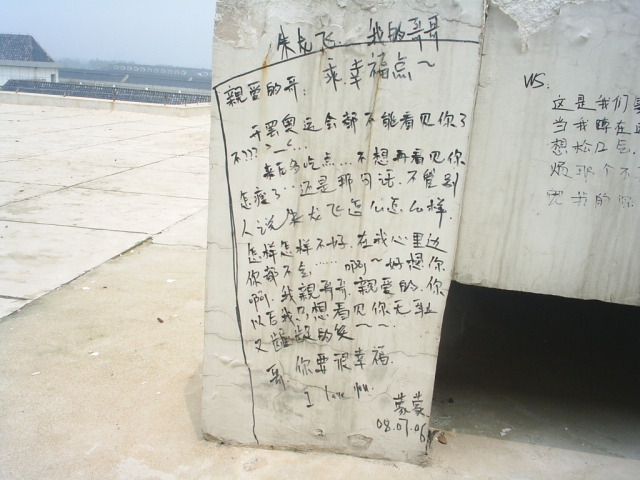 朱龙飞 我的哥哥
乘.幸福点~
親爱的哥:
开罢奥运会都不能看见你了
不??? >_<...
来后多吃点...不想再看见你
怎瘦了...还是那句话.不管别
人说朱龙飞怎么怎么样.
怎样怎样不好.在我心里边
你都不会......啊~好想你
啊.我親哥哥.親爱的.你
以后我只想看见你无耻
又龌龊的笑~~.
哥 你要很幸福.
I love you.
蒙蒙
08.07.06
WS:
这是我们
当我蹲在
想给
烦那个不